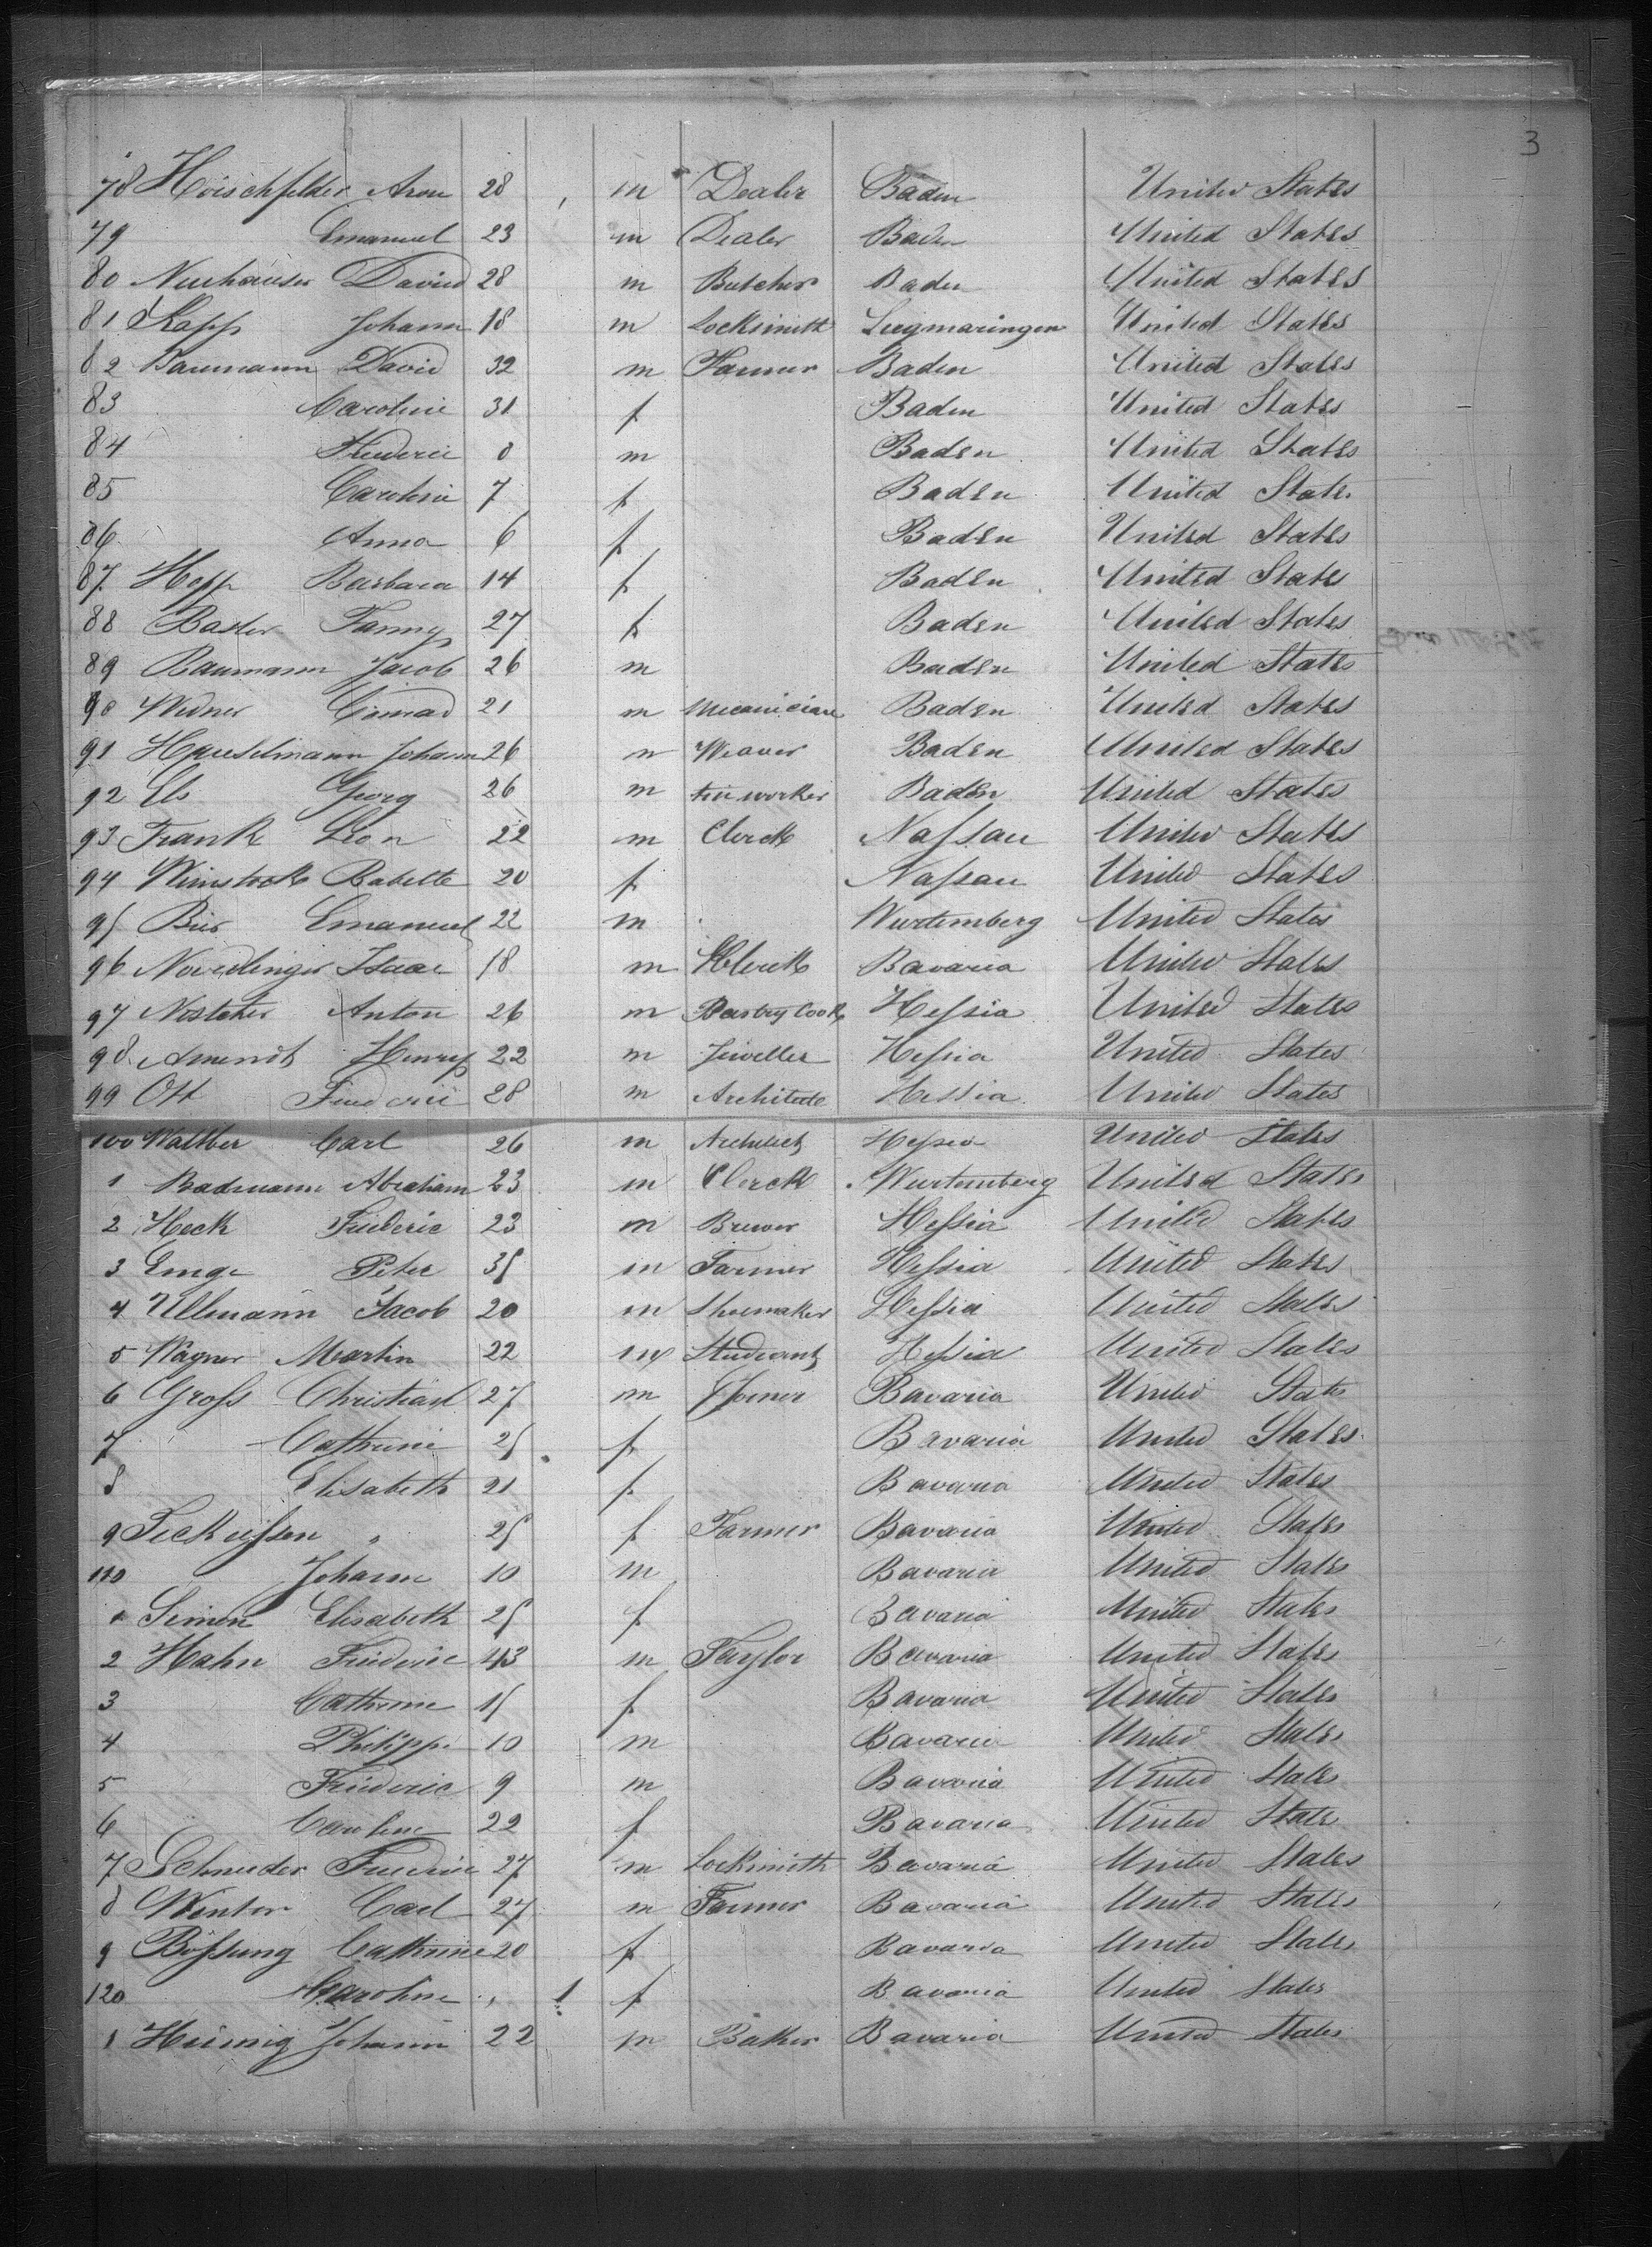 3
78 Hoischfelder Aron 28 m Dealer Baden United States
79 Emanuel 23 m Dealer Baden United States
80 Neuhauser David 28 m Butcher Baden United States
81 Kapp Johann 18 m Locksmith Siegmaringen United States
82 Baumann David 32 m Farmer Baden United States
83 Caroline 31 f Baden United States
84 Frederic 8 m Baden United States
85 Caroline 7 f Baden United States
86 Anna 6 f Baden United States
87. Hopp Barbara 14 f Baden United States
88 Basler Fanny 27 f Baden United States
89 Baumann Jacob 26 m Baden United States
90 Widner Conrad 21 m Mecanician Baden United States
91 Hauselmann Johann 26 m Weaver Baden United States
92 Els Georg 26 m tin worker Baden United States
93 Frank Leon 22 m Clerck Nassau United States
94 Weinstock Babette 20 f Nassau United States
95 Bier Emanuel 22 m Wurtemberg United States
96 Noerdlinger Isaac 18 m Clerck Bavaria United States
97 Anton 26 m Pastry Cook Hessia United States
98. Amendt Henry 22 m Jeweller Hessia United States
99 Ott Frederic 28 m Architecte Hessia United States
100 Walther Carl 26 m Architect Hessia United States
1 Badmann Abraham 23 m Clerck Wurtemberg United States
2 Heck Frederic 23 m Brewer Hessia United States
3 Emge Peter 35 m Farmer Hessia United States
4 Ullmann Jacob 20 m Shoemaker Hessia United States
5 Wagner Martin 22 m Studiant Hessia United States
6 Gross Christian 27 m Bavaria United States
7 Cathrine 25 f Bavaria United States
8 Elisabeth 21 f Bavaria United States
9 " 25 f Farmer Bavaria United States
110 Johann 10 m Bavaria United States
1 Simon Elisabeth 25 f Bavaria United States
2 Hahn Frederic 43 m Taylor Bavaria United States
3 Cathrine 15 f Bavaria United States
4 Philippe 10 m Bavaria United States
5 Frederic 9 m Bavaria United States
6 Caroline 22 f Bavaria United States
7 Schneider Frederic 27 m Locksmith Bavaria United States
8 Winter Carl 27 m Farmer Bavaria United States
9 Bossung Cathrine 20 f Bavaria United States
120 Caroline " 1 f Bavaria United States
1 Johann 22 m Baker Bavaria United States